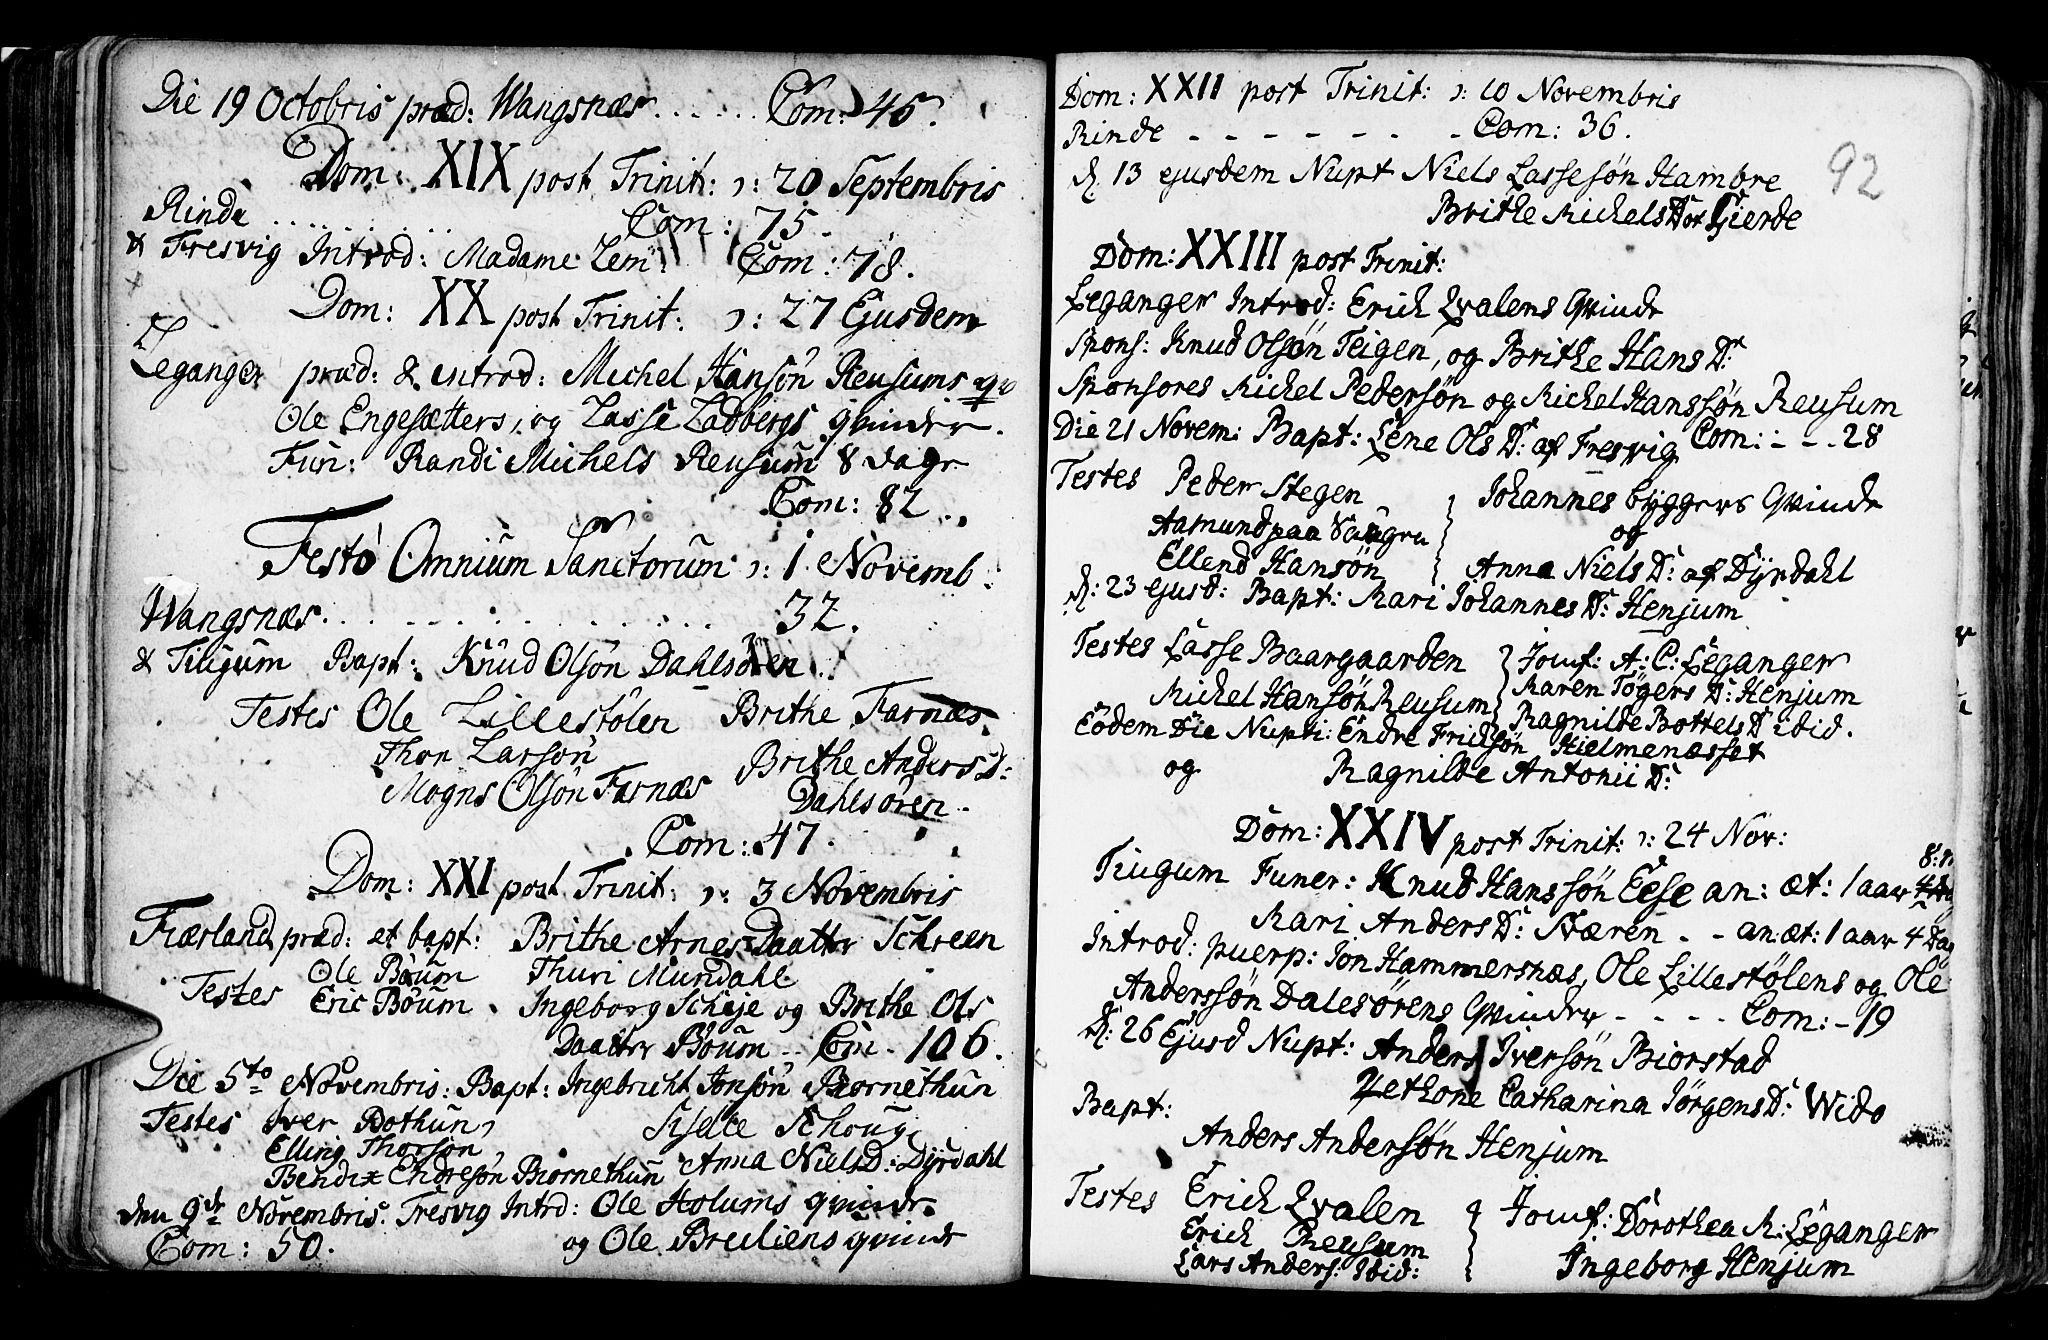 Die 19 Octobris præd: Wangsnæs . . . . . . Com: 45.
Dom: XIX post Trinit: ɔ: 20 Septembris
Rinde . . . . . . . . . . Com: 75.
& Fresvig Introd: Madame Lem Com: 78.
Dom: XX post Trinit: ɔ: 27 Ejusdem
Leganger præd: & introd: Michel Hansøn Reusums
Ole Engesætters, og Lasse Ladbergs qvinder.
Fun: Randi Michels Reusum 8 dage
Com: 82.
Festo Omnium Sanctorum ɔ: 1. Novemb:
Wangsnæs . . . . . . . . . . . . 32.
& Tiugum Bapt: Knud Olsøn Dahlsøren
Testes Ole Lillestølen Brithe Farnæs
Thor Larsøn Brithe Anders D:
Mogns Olsøn Farnæs Dahlsøren.
Com: 47.
Dom: XXI post Trinit: ɔ: 3 Novembris
Fiærland præd: et bapt: Brithe Arnes Daatter Schreen
Testes Ole Bøum Thuri Mundahl
Eric Bøum. Ingeborg Scheje og Brithe Ols
Daatter Bøum . . Com. 106.
Die 5to Novembris: Bapt: Ingebricht Jonsøn Biornethun
Testes Iver Bothun, Sisele Schoug
Elling Thorsøn,
Bendix Endresøn Biornethun Anna Niels D: Dyrdahl
den 9de Novembris. Fresvig Intrd: Ole Holums qvinde
Com: 50. og Ole Breiliens qvinde
92
Dom: XXII post Trinit: ɔ: 10 Novembris
Rinde - - - - - - - Com: 36.
d: 13 ejusdem Nupt Niels Lassesøn Hambre
Brithe Michels Dor Gierde
Dom: XXIII post Trinit:
Leganger Introd: Erich Qvalens Qvinde
Spons: Knud Olsøn Teigen, og Brithe Hans Dr
Sponsores Michel Pedersøn og Michel Hanssøn Reusum
Die 21 Novem: Bapt: Lene Ols D: af Fresvig Com: - - - 28
Testes Peder Stegen Johannes byggers Qvinde
Aamund paa og
Ellend Hansøn Anna Niels D: af Dyrdahl
d: 23 ejusd: Bapt: Mari Johannes D: Henjum
Testes Lasse Baargaarden Jomf: A: C: Leganger
Michel Hansøn Reusum Maren Tøgers D: Henjum
Ragnilde Bottels D ibid.
Eodem Die Nupti: Endre Erichsøn Hielmenæsset
og Ragnilde Antonii D:
Dom: XXIV post Trinit: ɔ: 24 Nov:
Tiugum Funer: Knud Hanssøn Eese an: æt: 1 aar
Mari Anders D: Næren - - an: æt: 1 aar 4 Dag
Introd: puerp: Jon Hammersnæs, Ole Lillestølens og Ole
Anderssøn Dalesørens Qvinder - - - - Com: - 19
d: 26 Ejusd Nupt: Anders Iversøn Biorstad
Methone Catharina Jørgens D: Wido
Bapt:
Anders Andersøn Henjum
Testes Erich Qvalen Jomf: Dorothea M: Leganger
Erich Reusum Ingeborg Henjum
Lars Anders: Ibid: